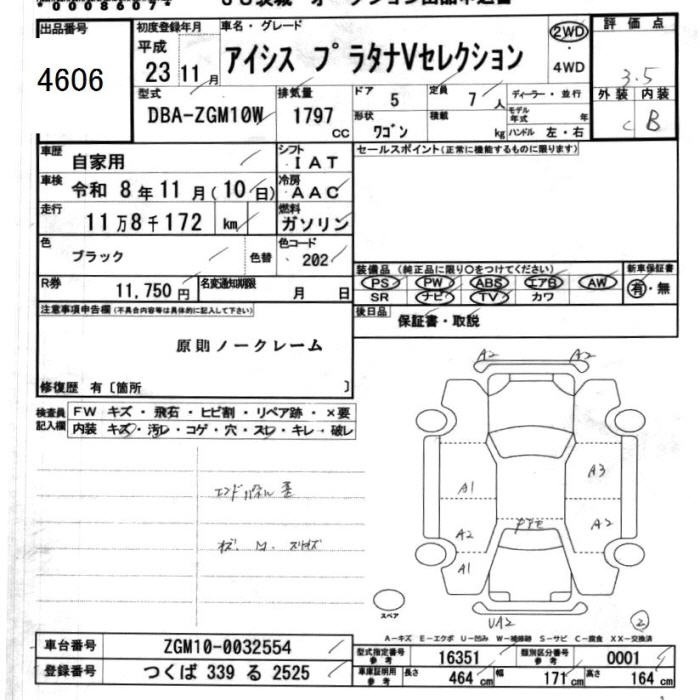 出品番号
4606
初度登録年月
平成
23 11月
車名・グレード
アイシス プラタナVセレクション
2WD
・
4WD
評価点
3.5
外装 内装
C B
型式
DBA-ZGM10W
排気量
1797
CC
ドア
5
定員
7 人
ディーラー・並行
形状
ワゴン
積載
kg
モデル年式 年
ハンドル 左・右
車歴
自家用
シフト
IAT
セールスポイント(正常に機能するものに限り)
車検
令和 8年11月(10日)
冷房
AAC
走行
11万8千172 km
燃料
ガソリン
色
ブラック
色替
色コード
202
装備品(純正品に限り○をつけてください)
新車保証書
PS PW ABS エアB AW
SR ナビ TV カワ
有・無
R券
11,750円
名変通知期限
月 日
後日品
保証書・取説
注意事項申告欄(不具合内容等は具体的に記入して下さい)
原則ノークレーム
修復歴 有〔箇所 〕
検査員記入欄
FW キズ・飛石・ヒビ割・リペア跡・×要
内装 キズ・汚レ・コゲ・穴・スレ・キレ・破レ
A2 A2
A1 A3
A2 A2
A1
UA2 2
スペア
A-キズ E-エクボ U-凹み W-補修跡 S-サビ C-腐食 XX-交換済
車台番号
ZGM10-0032554
登録番号
つくば 339 る 2525
型式指定番号
参考
16351
類別区分番号
参考
0001
車庫証明用
参考
長さ 464 cm
幅 171 cm
高さ 164 cm